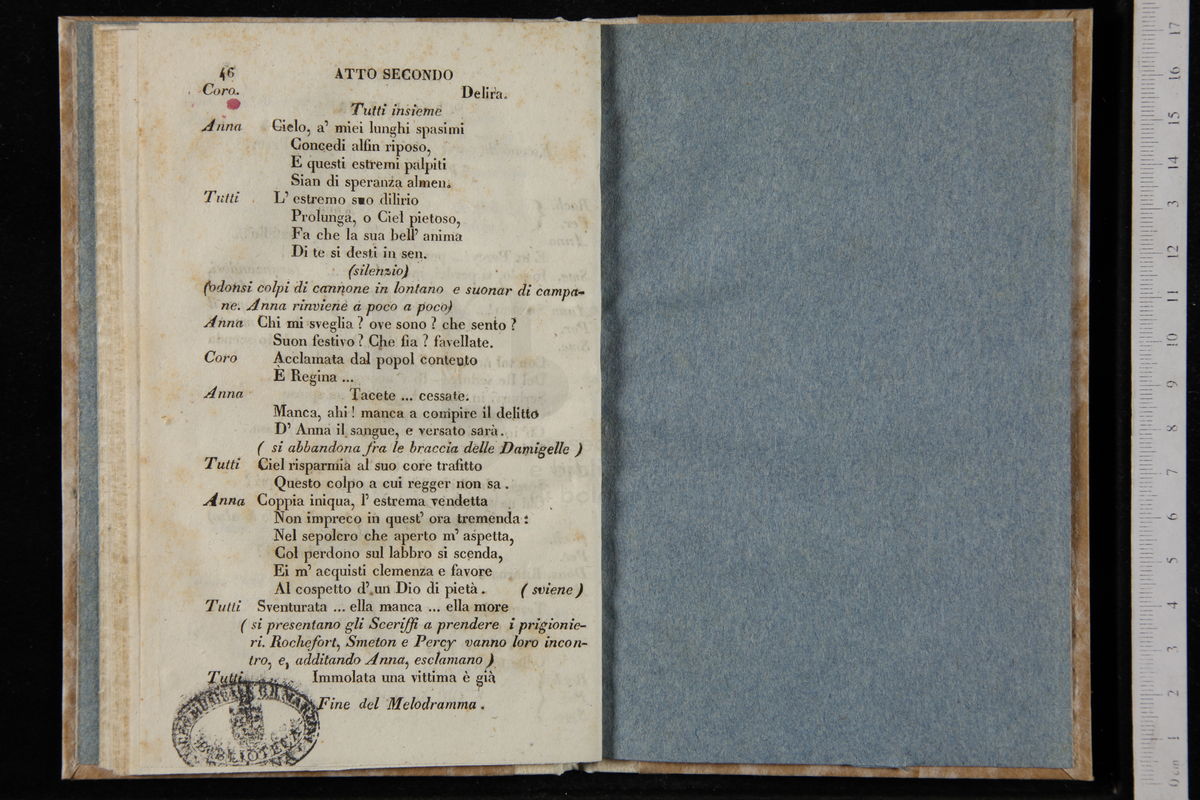 46 ATTO SECONDO
Coro. Delira.
Tutti insieme
Anna Cielo, a' miei lunghi spasimi
Concedi alfin riposo,
E questi estremi palpiti
Sian di speranza almen.
Tutti L' estremo suo dilirio
Prolunga, o Ciel pietoso,
Fa che la sua bell' anima
Di te si desti in sen.
(silenzio)
(odonsi colpi di cannone in lontano e suonar di campa-
ne. Anna rinviene a poco a poco)
Anna Chi mi sveglia ? ove sono ? che sento ?
Suon festivo ? Che fia ? favellate.
Coro Acclamata dal popol contento
È Regina ...
Anna Tacete ... cessate.
Manca, ahi ! manca a compire il delitto
D' Anna il sangue, e versato sarà.
( si abbandona fra le braccia delle Damigelle )
Tutti Ciel risparmia al suo core trafitto
Questo colpo a cui regger non sa .
Anna Coppia iniqua, l' estrema vendetta
Non impreco in quest' ora tremenda :
Nel sepolcro che aperto m' aspetta,
Col perdono sul labbro si scenda,
Ei m' acquisti clemenza e favore
Al cospetto d' un Dio di pietà . ( sviene )
Tutti Sventurata ... ella manca ... ella more
( si presentano gli Sceriffi a prendere i prigionie-
ri. Rochefort, Smeton e Percy vanno loro incon-
tro, e, additando Anna, esclamano )
Tutti Immolata una vittima è già
Fine del Melodramma .
BIBLIOTECA
0 cm 1 2 3 4 5 6 7 8 9 10 11 12 13 14 15 16 17